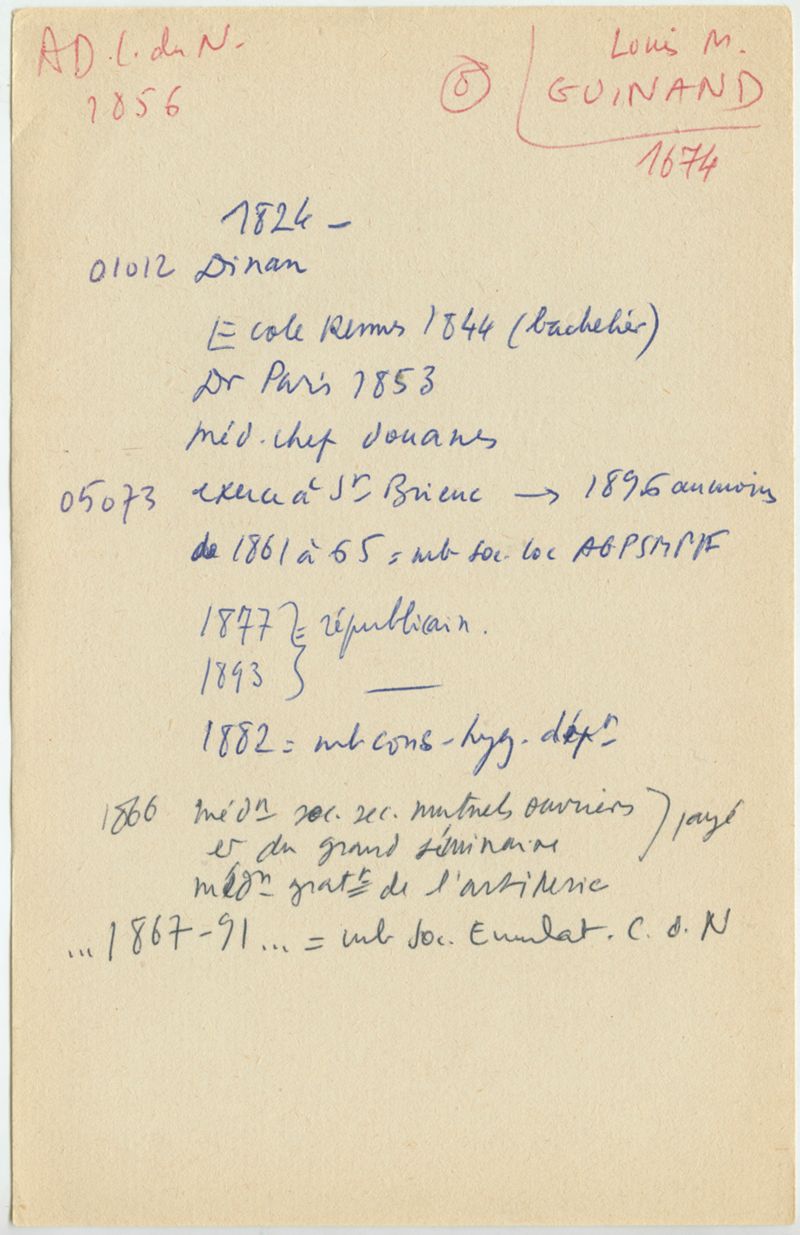 AD. C. du N.
1856
Louis M.
GUINAND
1674
1824 -
01012 Dinan
Ecole Rennes 1844 (bachelier)
Dr Paris 1853
méd. chef douanes
05073 exerce à St Brieuc → 1896 au moins
de 1861 à 65 = mb soc. loc AGPSMMF
1877 } = républicain.
1893 } —
1882 = mb cons. hyg. dépt
1866 médn soc. sec. mutuels ouvriers } payé
et du grand séminaire
médn gratt de l'artillerie
... 1867-91 ... = mb soc. Emulat. C. d. N